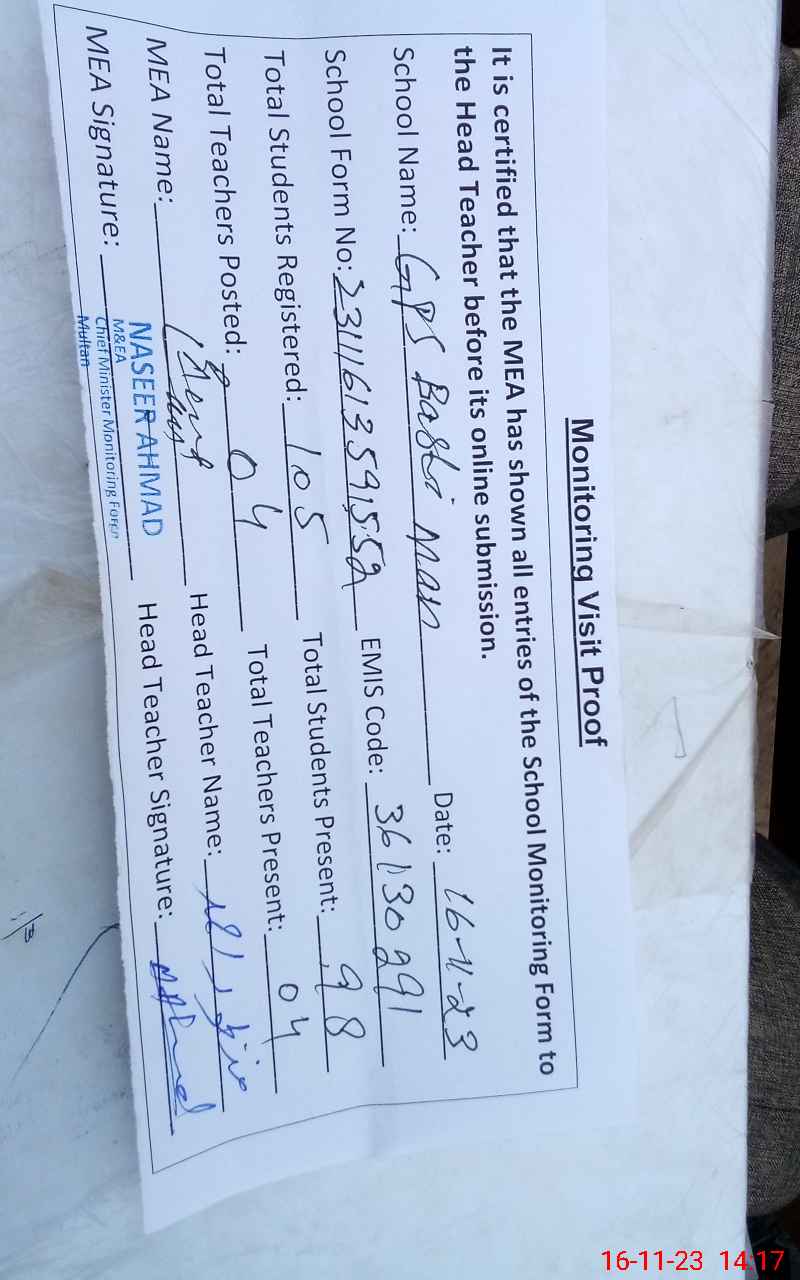 Monitoring Visit Proof
It is certified that the MEA has shown all entries of the School Monitoring Form to
the Head Teacher before its online submission.
School Name: GPS Basti Date: 16-11-23
School Form No: EMIS Code: 36130291
Total Students Registered: 105 Total Students Present: 98
Total Teachers Posted: 04 Total Teachers Present: 04
MEA Name: Head Teacher Name:
MEA Signature: Head Teacher Signature:
NASEER AHMAD
M&EA
Chief Minister Monitoring Force
Multan
16-11-23 14:17